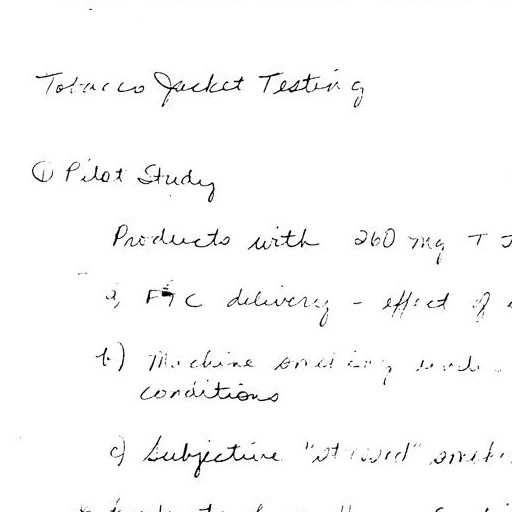 Tobacco Jacket Testing
① Pilot Study
Products with 260 mg T J
a) FTC delivery - effect of
b) Machine smoking under
conditions
c) Subjective "stressed" smoki